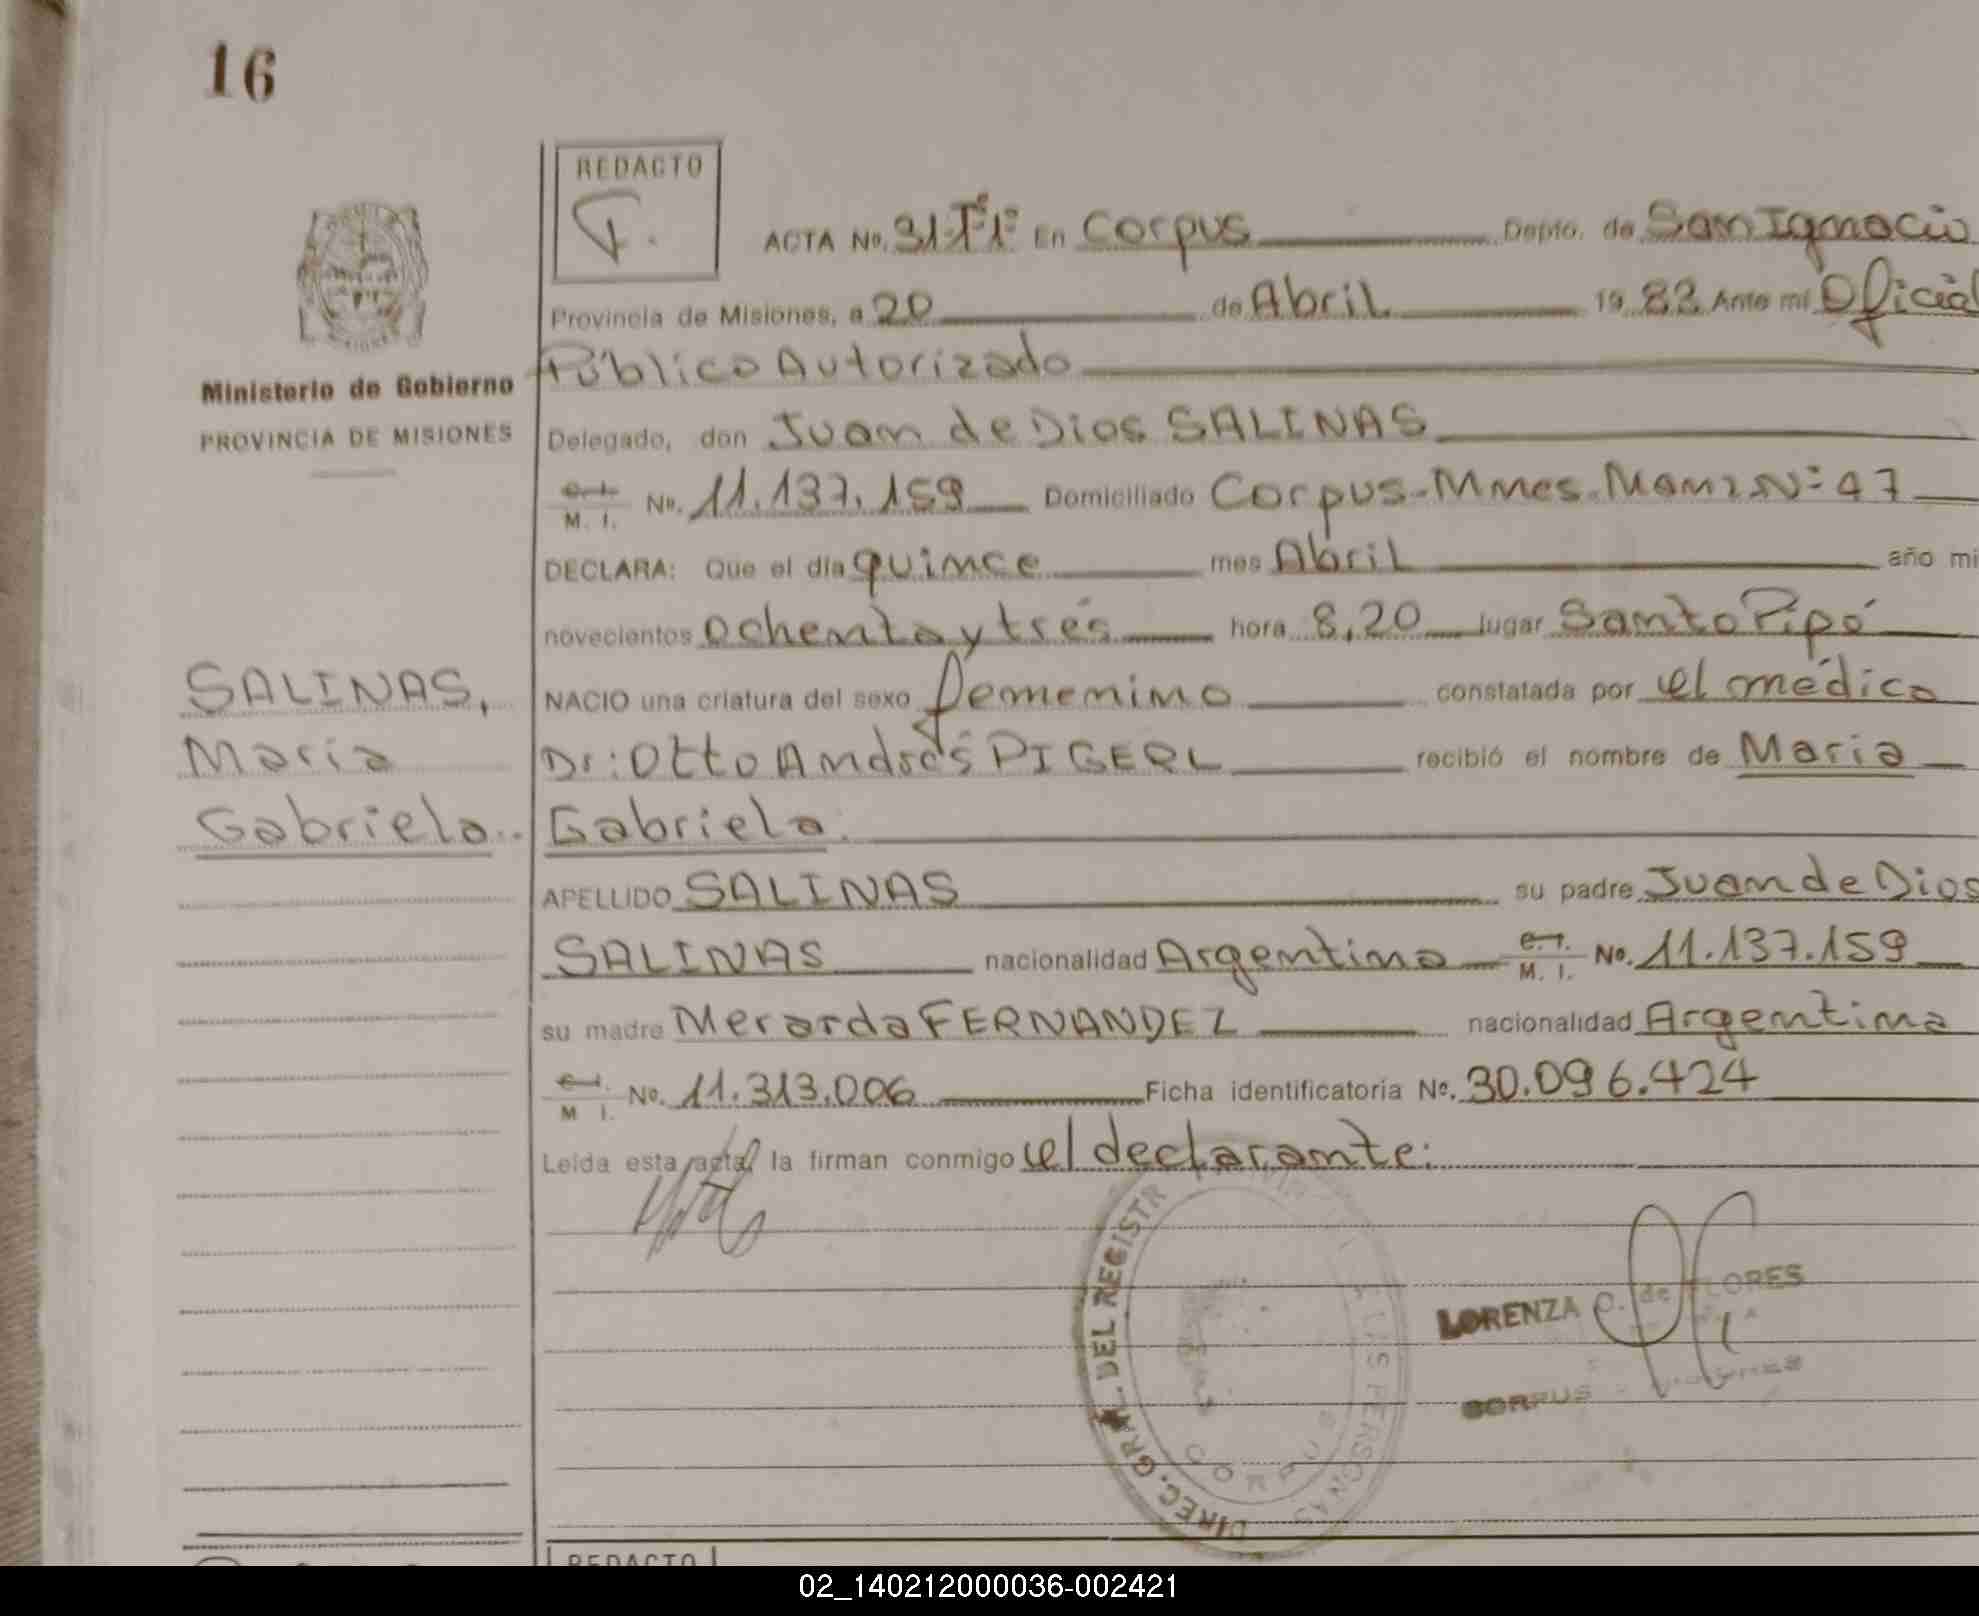 16
REDACTO
F.
ACTA No. 31-Tº1º En Corpus Depto. de San Ignacio
Provincia de Misiones, a 20 de Abril 19 83 Ante mi Oficial
Ministerio de Gobierno
PROVINCIA DE MISIONES
Público Autorizado
Delegado, don Juan de Dios SALINAS
C. I. M. I. No. 11.137.159 Domiciliado Corpus-Mnes. Manz Nº 47
DECLARA: Que el día quince mes Abril año mi
novecientos ochenta y tres hora 8,20 lugar Santo Pipó
NACIO una criatura del sexo femenino constatada por el médico
Dr: Otto Andrés PIGERL recibió el nombre de María
Gabriela.
SALINAS,
María
Gabriela..
APELLIDO SALINAS su padre Juan de Dios
SALINAS nacionalidad Argentina C. I. M. I. No. 11.137.159
su madre Merarda FERNANDEZ nacionalidad Argentina
C. I. M I. No. 11.313.006 Ficha identificatoria No. 30.096.424
Leida esta acta, la firman conmigo el declarante:
DIREC. GRAL. DEL REGISTR
PERSONAS
CORPUS
LORENZA C. de FLORES
CORPUS - Misiones
REDACTO
02_140212000036-002421